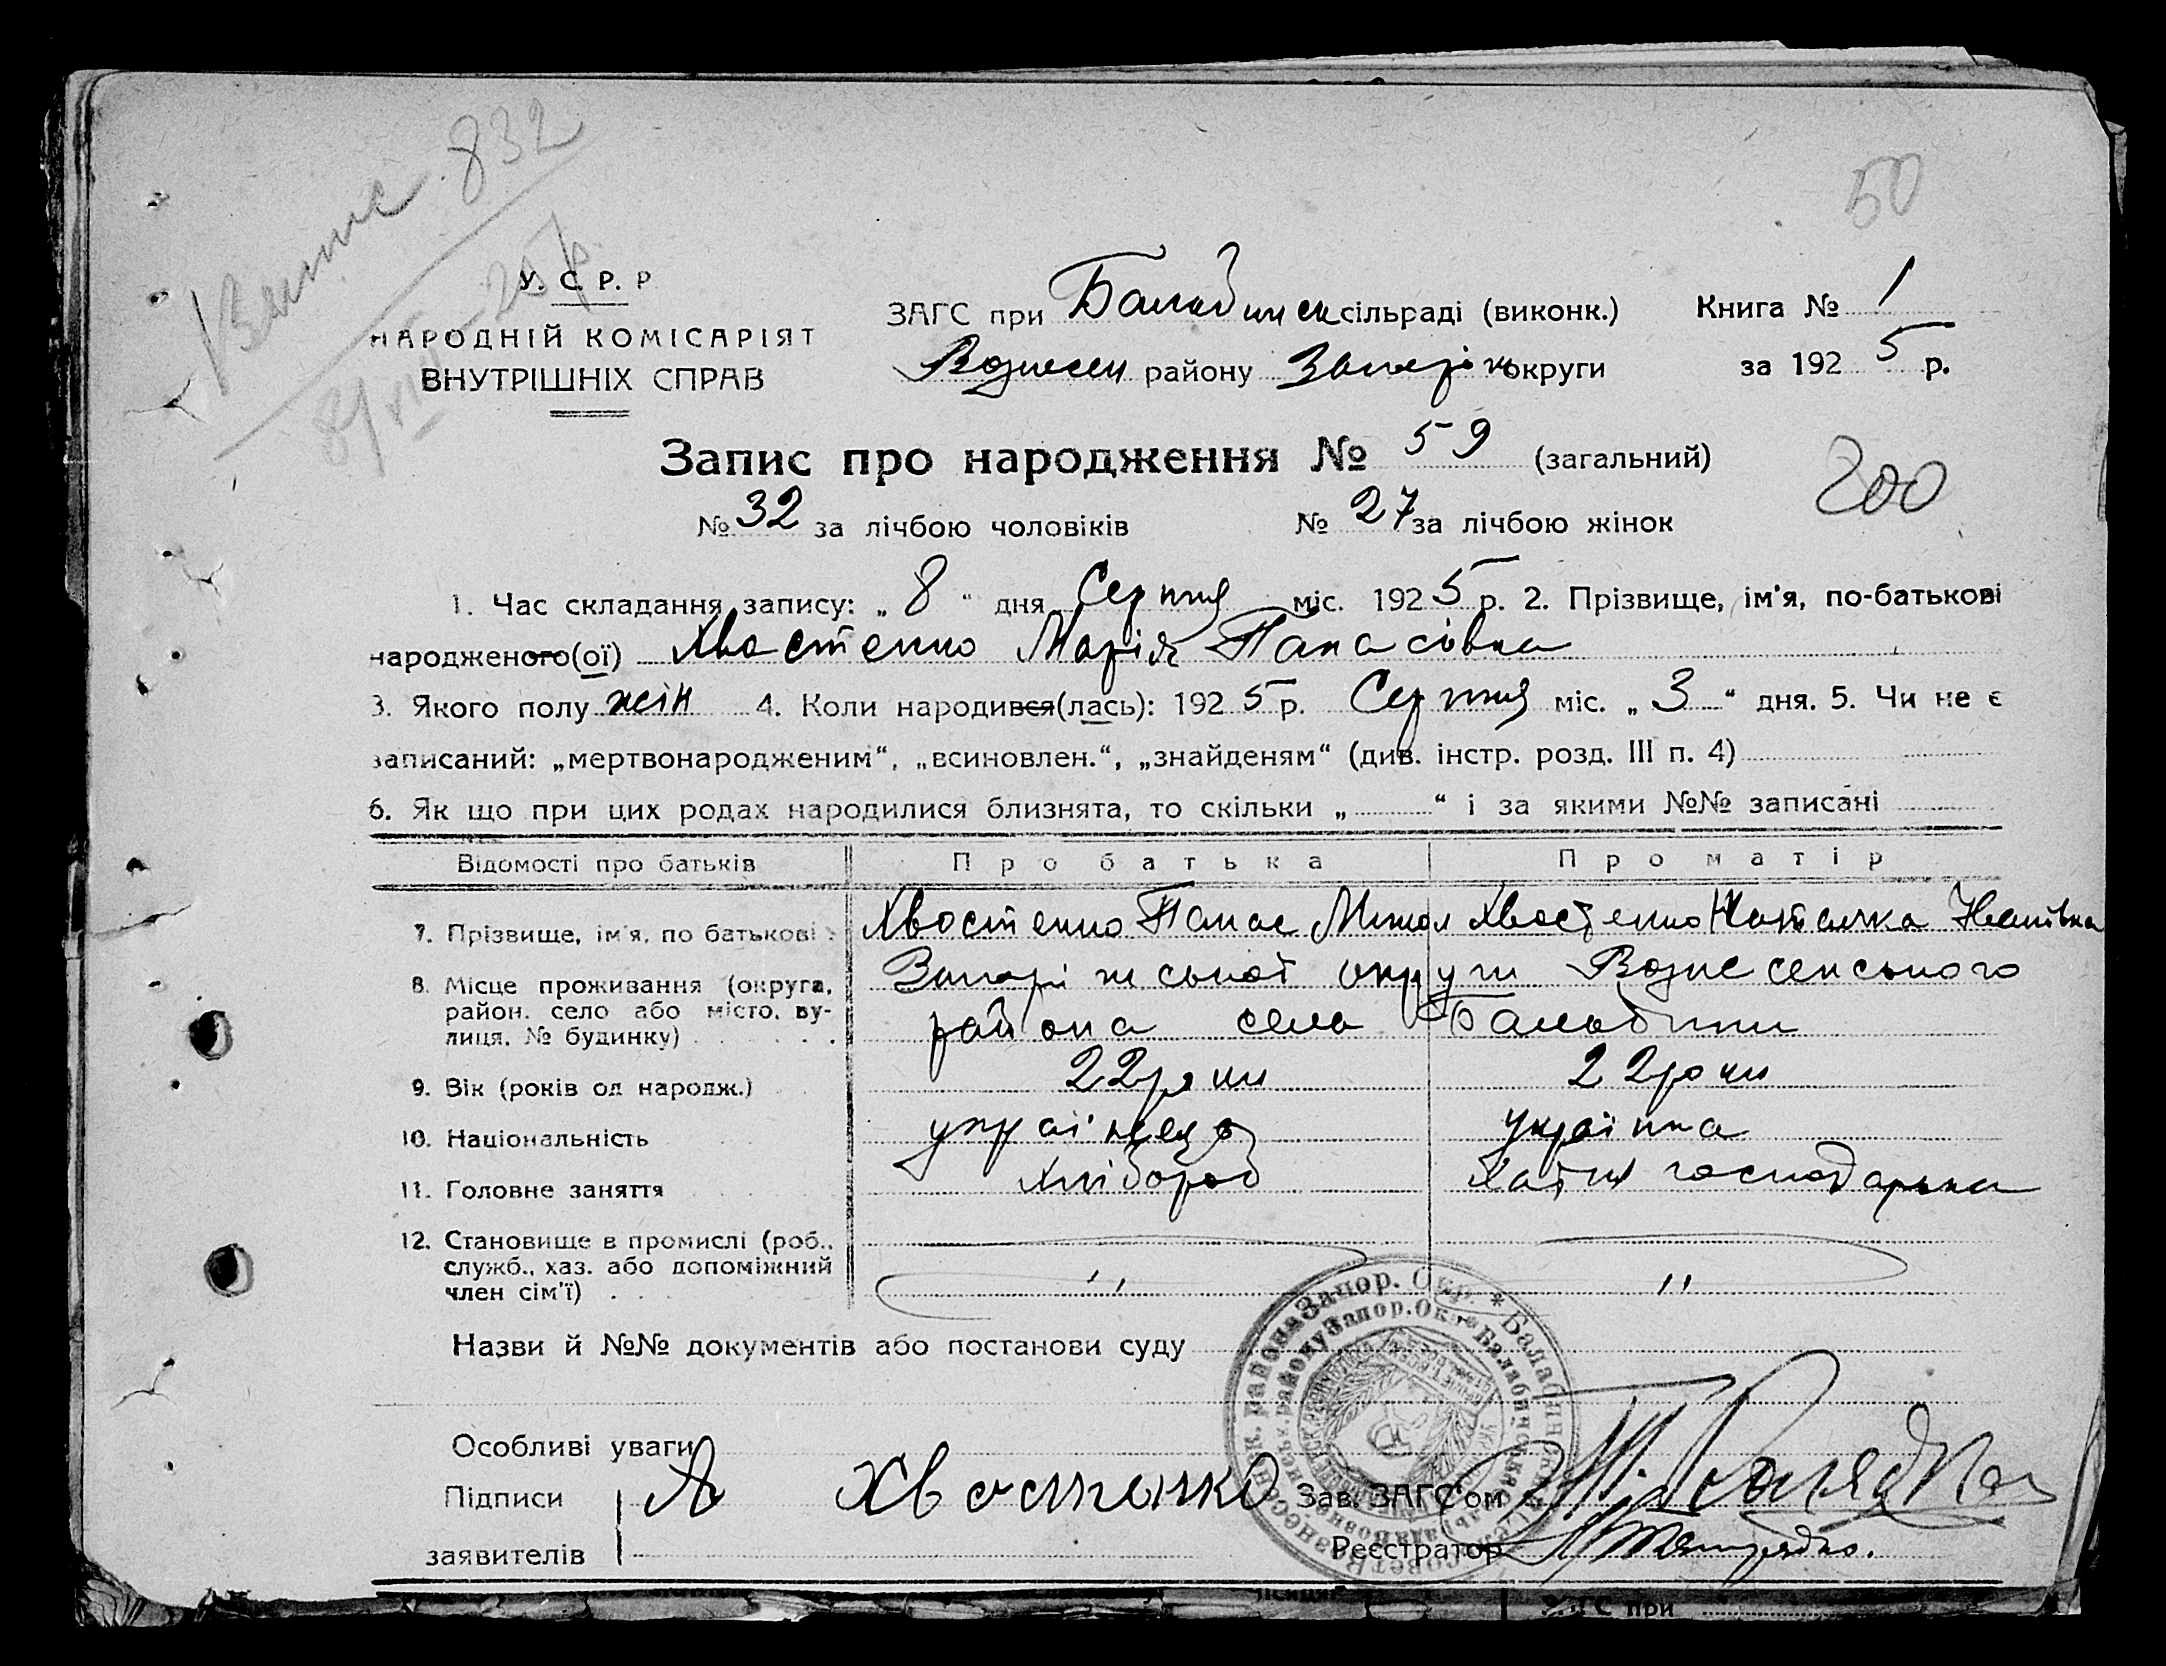 Витяг 832
8/VIII-25 р.
50
У. С. Р. Р
НАРОДНІЙ КОМІСАРІЯТ
ВНУТРІШНІХ СПРАВ
ЗАГС при Балабинск сільраді (виконк.) Книга № 1
Вознесен району Запоріж округи за 192 5 р.
Запис про народження № 59 (загальний)
200
№ 32 за лічбою чоловіків № 27 за лічбою жінок
1. Час складання запису: „ 8 “ дня Серпня міс. 192 5 р. 2. Прізвище, ім'я, по-батькові
народженого(ої) Хвостенко Марія Панасівна
3. Якого полу жін 4. Коли народився(лась): 192 5 р. Серпня міс. „ 3 “ дня. 5. Чи не є
записаний: „мертвонародженим“, „всиновлен.“, „знайденям“ (див. інстр. розд. III п. 4)
6. Як що при цих родах народилися близнята, то скільки „ “ і за якими №№ записані
Відомості про батьків Про батька Про матір
7. Прізвище, ім'я, по батькові : Хвостенко Панас Микол Хвостенко Наталка Іванівна
8. Місце проживання (округа, район, село або місто, вулиця, № будинку) Запоріжської округи Вознесенського
района села Балабини
9. Вік (років од народж.) 22 роки 22 роки
10. Національність українець українка
11. Головне заняття хлібороб хатня господарька
12. Становище в промислі (роб.,
служб., хаз. або допоміжний
член сім'ї) . . . " "
Назви й №№ документів або постанови суду
Особливі уваги
Підписи А Хвостенко Зав. ЗАГС'ом
заявителів Реєстратор
ЗАГС при